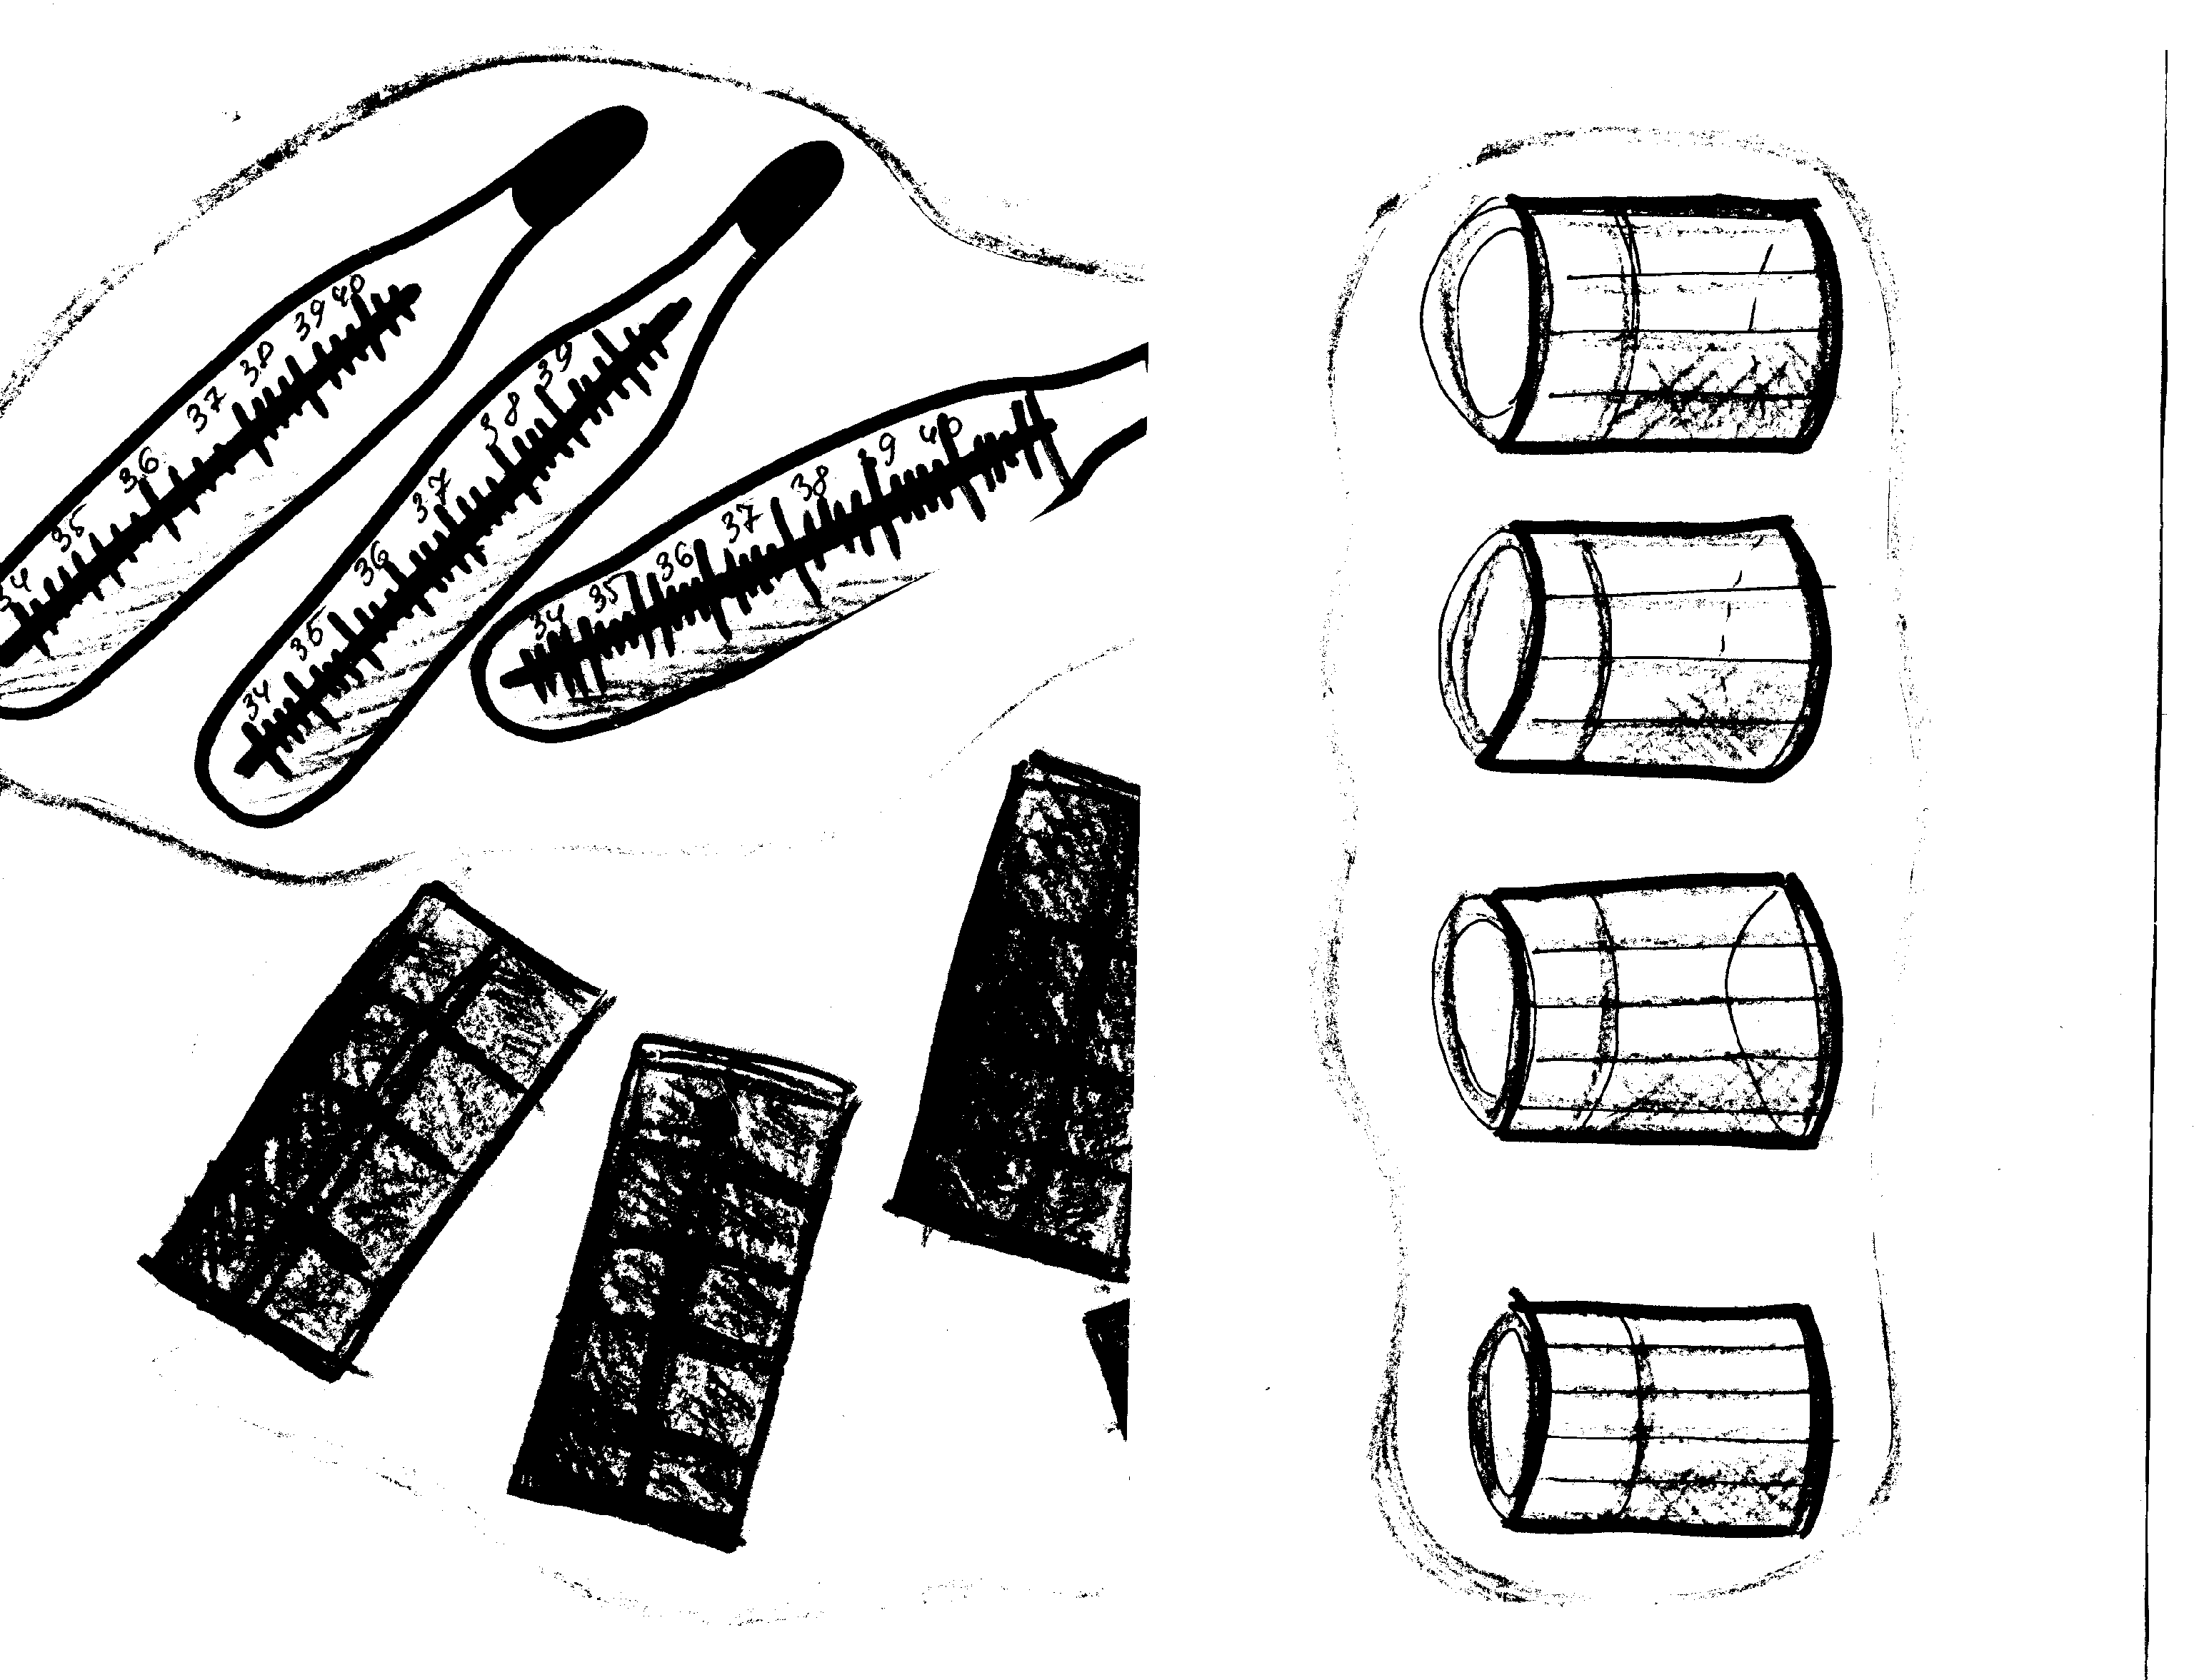 34 35 36 37 38 39 40
34 35 36 37 38 39
34 35 36 37 38 39 40